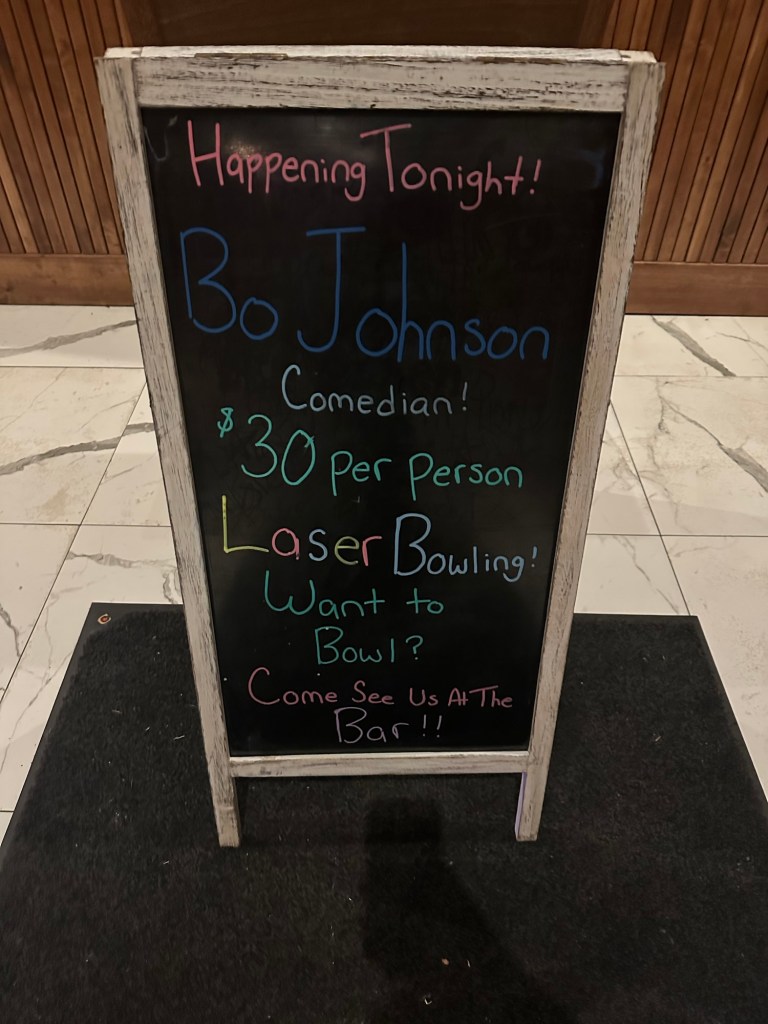 Happening Tonight!
Bo Johnson
Comedian!
$30 per person
Laser Bowling!
Want to
Bowl?
Come See Us At The
Bar!!